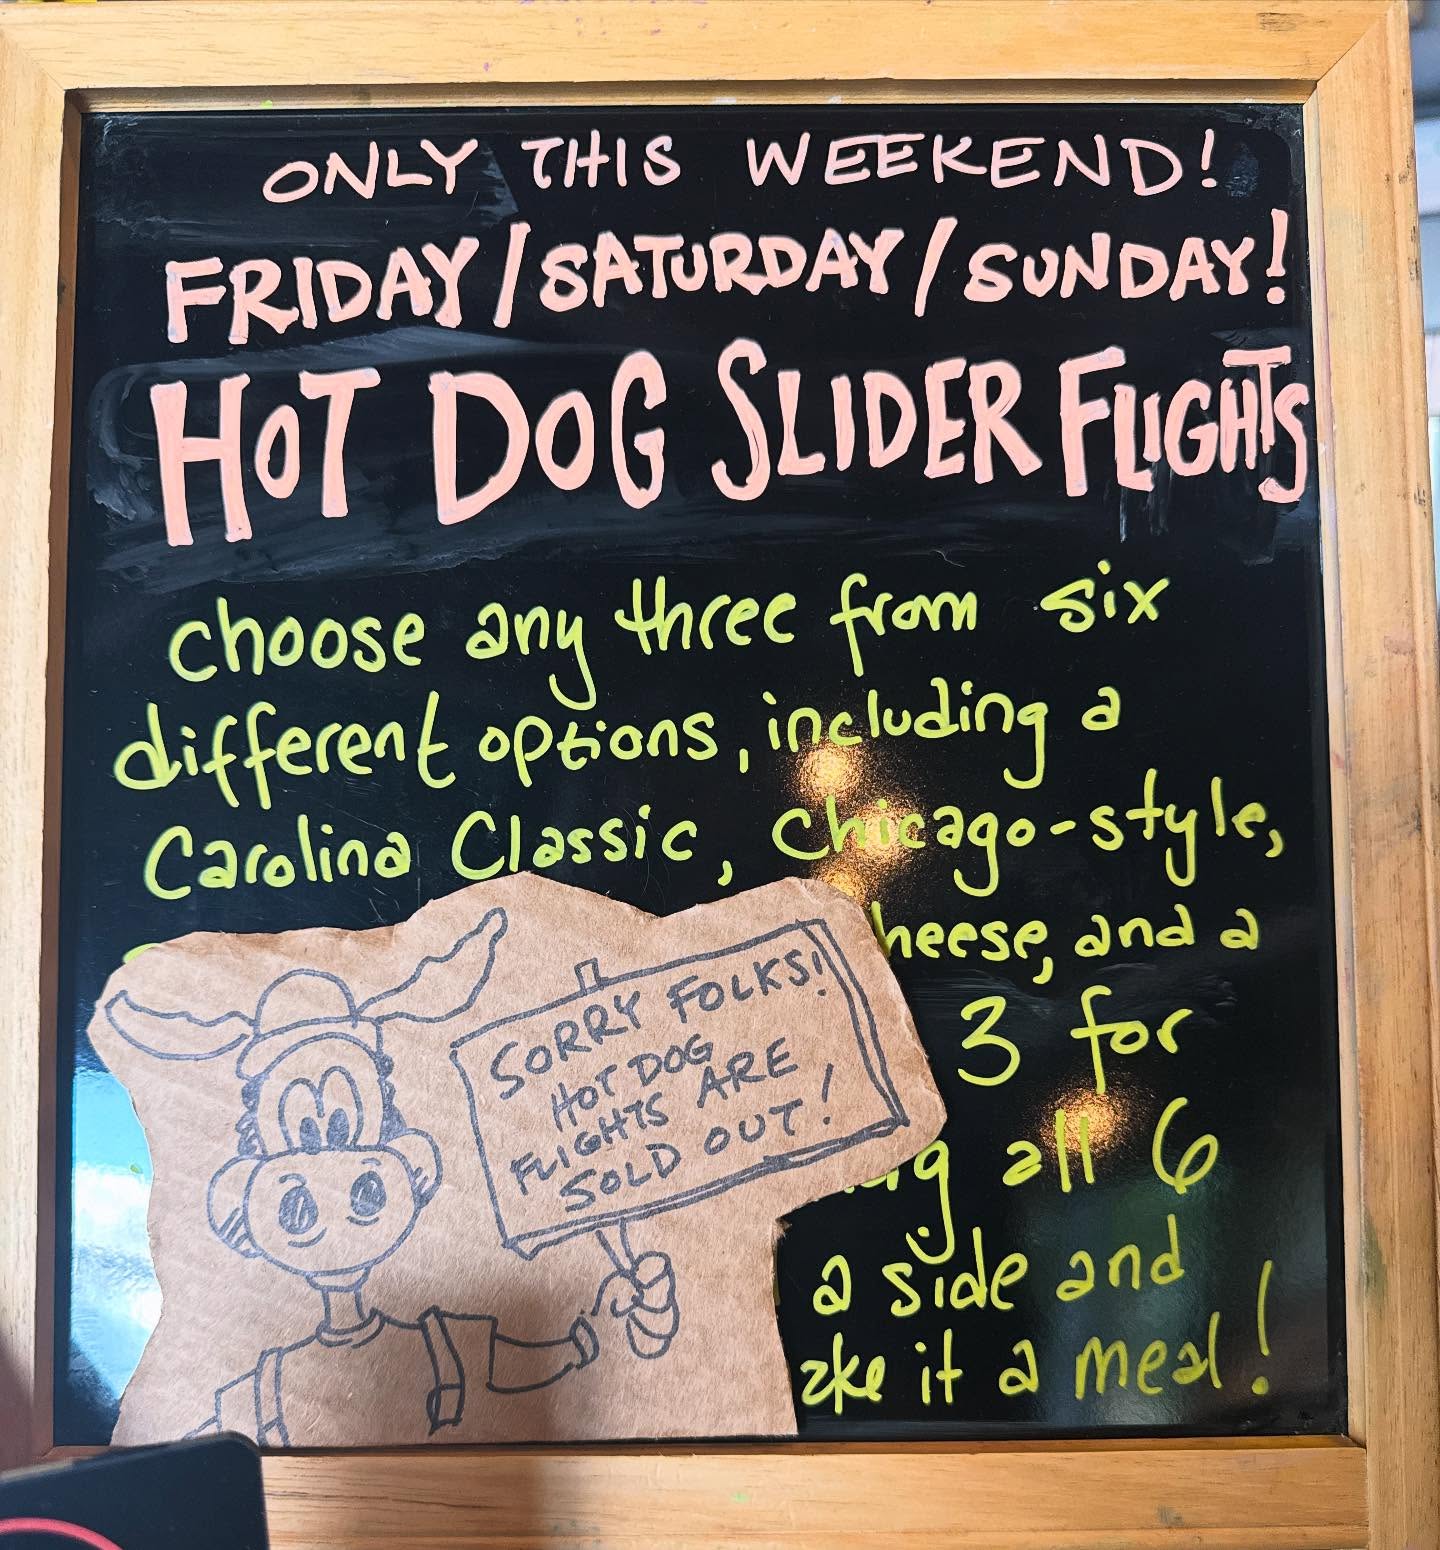 ONLY THIS WEEKEND!
FRIDAY/SATURDAY/SUNDAY!
HOT DOG SLIDER FLIGHTS
choose any three from six
different options, including a
Carolina Classic, Chicago-style,
and a
3 for
all 6
a side and
it a meal!
SORRY FOLKS!
HOT DOG
FLIGHTS ARE
SOLD OUT!